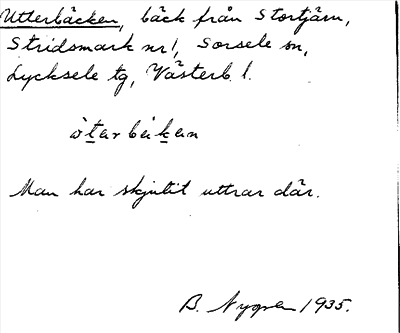 Utterbäcken, bäck från Stortjärn,
Stridsmark nr 1, Sorsele sn,
Lycksele tg, Västerb. l.
Man har skjutit uttrar där.
B. 1935.